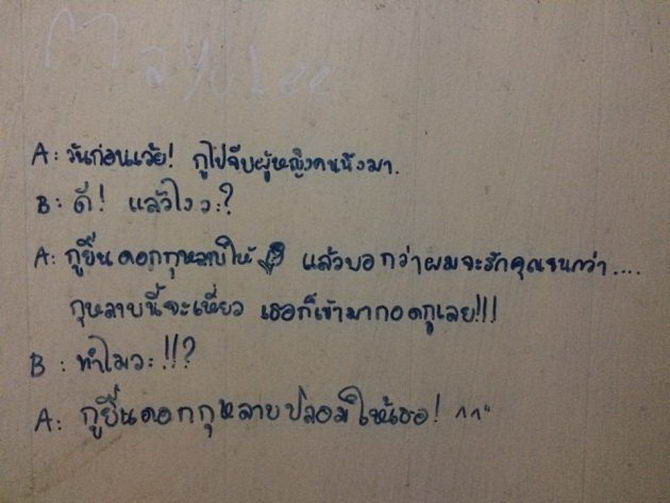 A: วันก่อนเว้ย! กูไปจีบผู้หญิงคนนึงมา.
B: ดี! แล้วไงวะ?
A: กูยื่นดอกกุหลาบให้ แล้วบอกว่าผมจะรักคุณจนกว่า....
กุหลาบนี้จะเหี่ยว เธอก็เข้ามากอดกูเลย!!!
B: ทำไมวะ!!?
A: กูยื่นดอกกุหลาบปลอมให้เธอ! ^^"